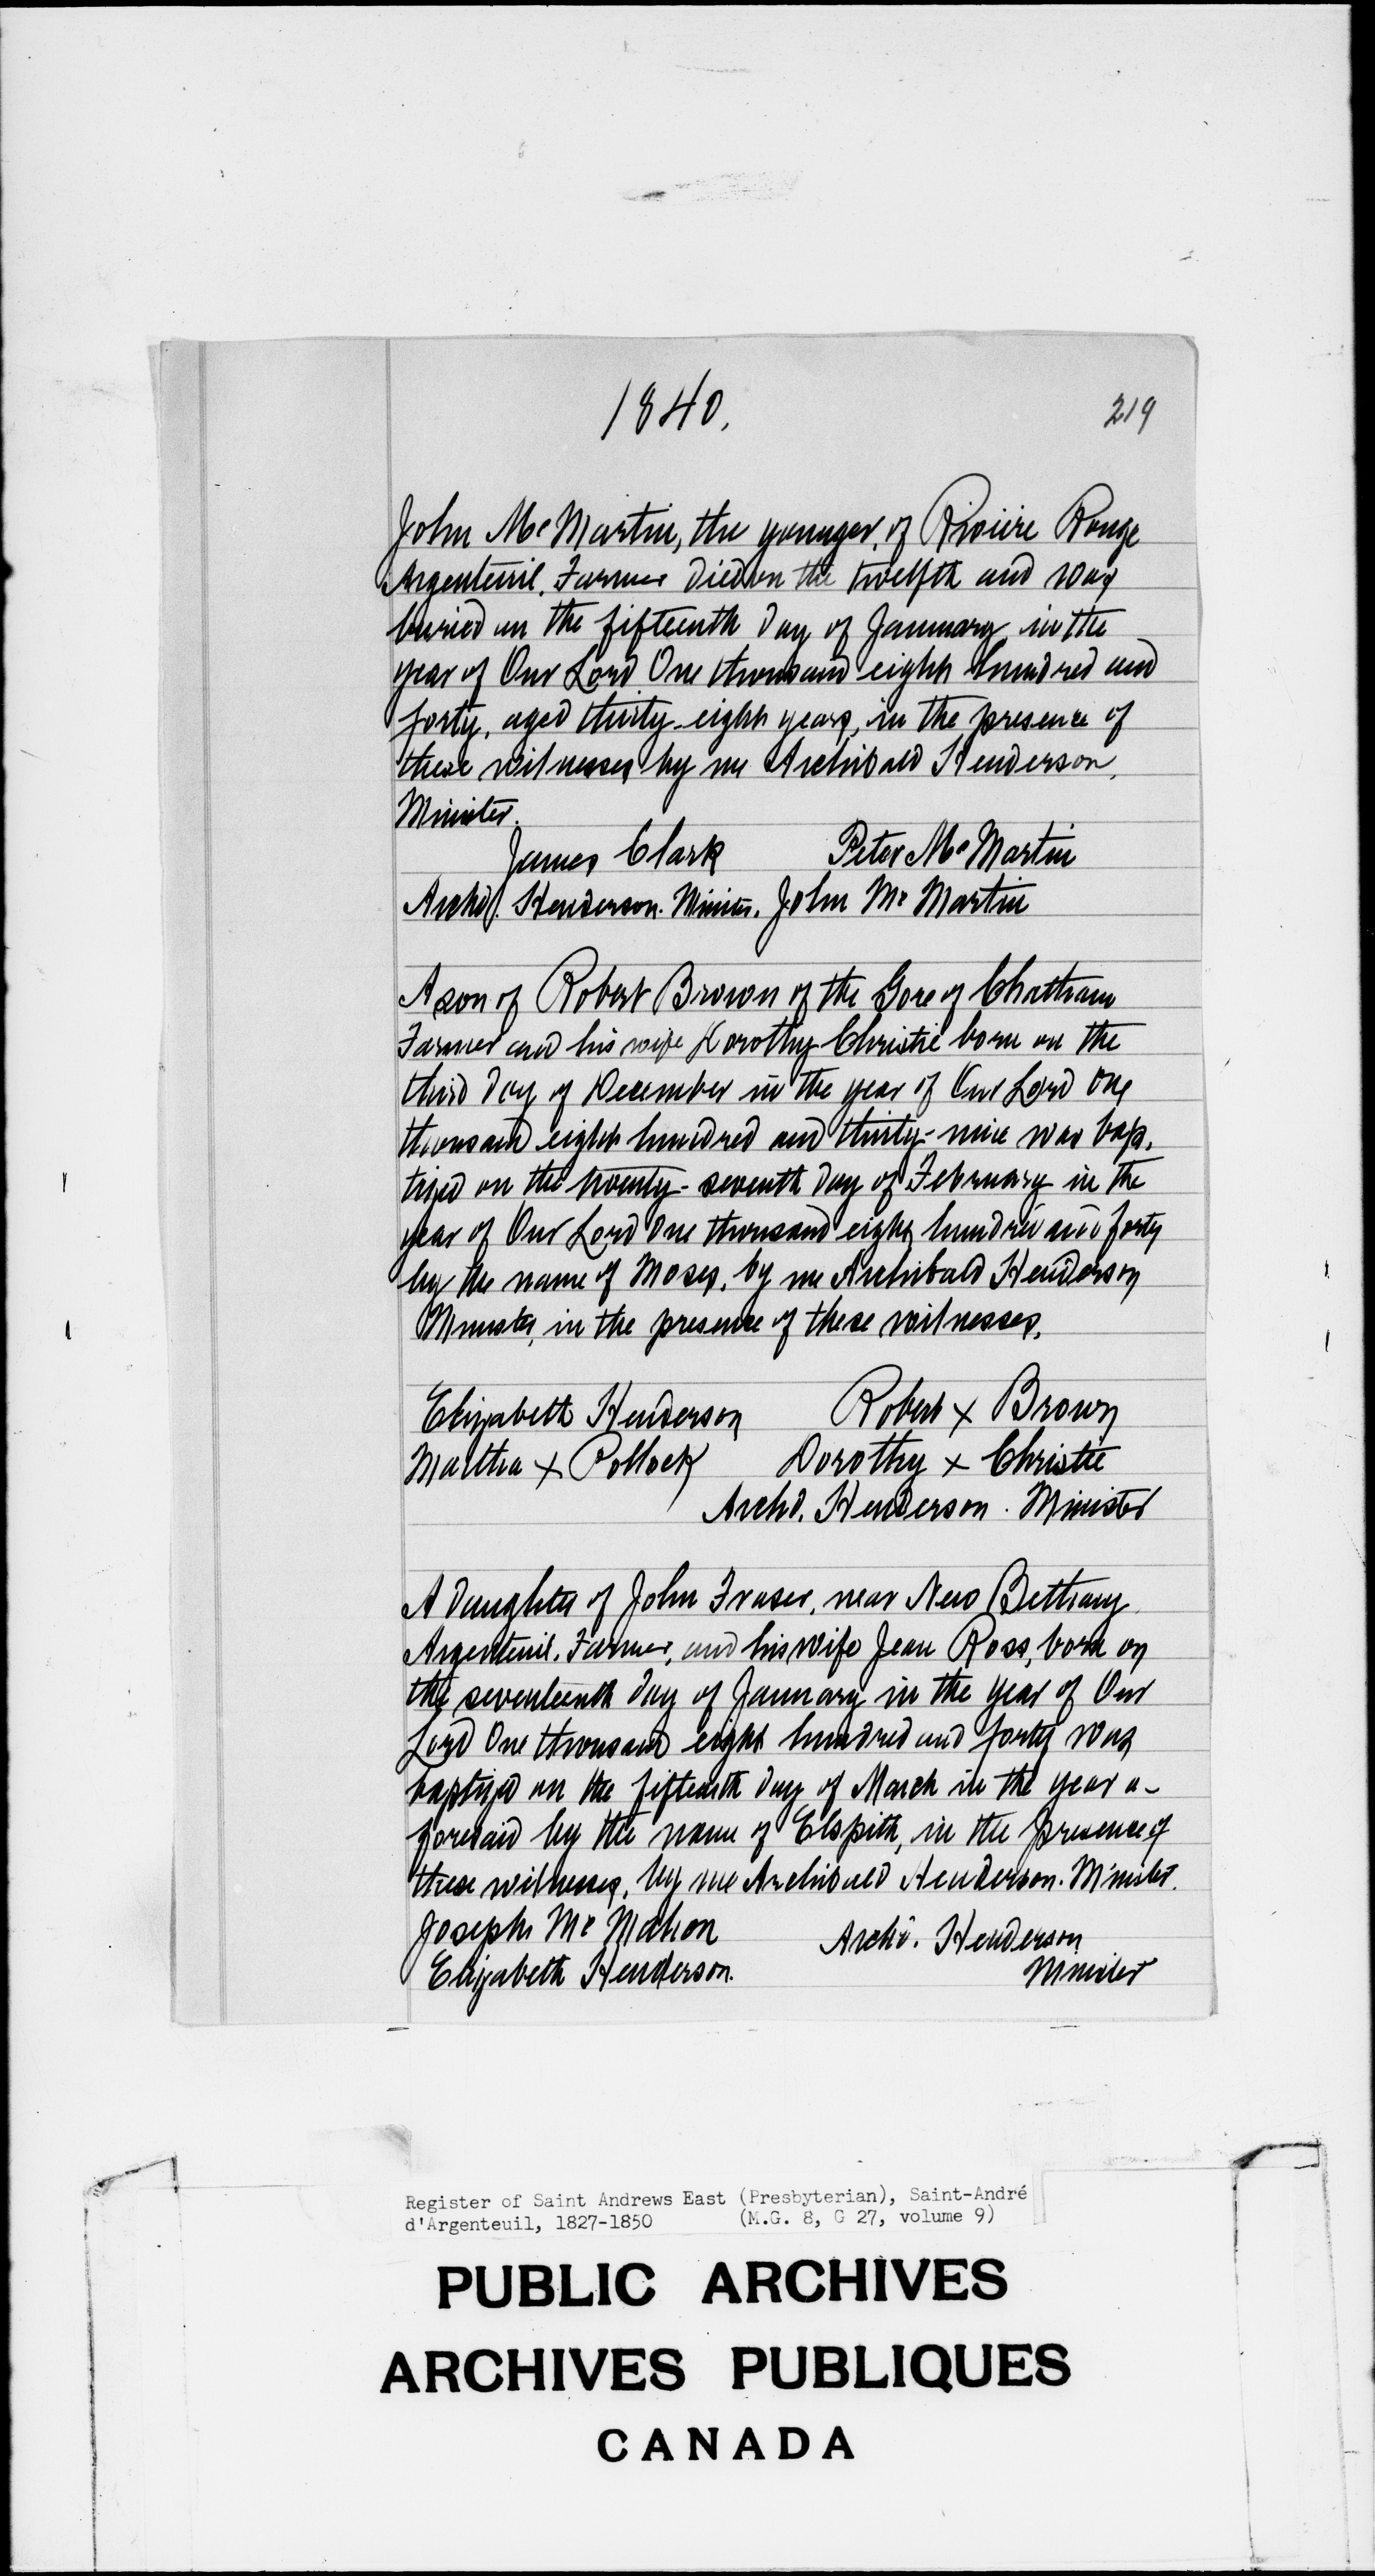 1840.
219
John McMartin, the younger, of Rivière Rouge
Argenteuil. Farmer died on the twelfth and was
buried on the fifteenth day of January in the
year of Our Lord One thousand eight hundred and
forty, aged thirty-eight years, in the presence of
these witnesses by me Archibald Henderson,
Minister.
James Clark Peter McMartin
Archd. Henderson. Minister. John McMartin
A son of Robert Brown of the Gore of Chatham
Farmer and his wife Dorothy Christie born on the
third day of December in the year of Our Lord One
thousand eight hundred and thirty-nine was bap-
tized on the twenty-seventh day of February in the
year of Our Lord One thousand eight hundred and forty
by the name of Moses, by me Archibald Henderson
Minister, in the presence of these witnesses.
Elizabeth Henderson Robert x Brown
Martha x Pollock Dorothy x Christie
Archd. Henderson. Minister
A daughter of John Fraser, near New Bethany
Argenteuil. Farmer, and his wife Jean Ross, born on
the seventeenth day of January in the year of Our
Lord One thousand eight hundred and forty was
baptized on the fifteenth day of March in the year a-
foresaid by the name of Elspith, in the presence of
these witnesses, by me Archibald Henderson. Minister.
Joseph McMahon Archd. Henderson
Elizabeth Henderson. Minister
Register of Saint Andrews East (Presbyterian), Saint-André
d'Argenteuil, 1827-1850 (M.G. 8, G 27, volume 9)
PUBLIC ARCHIVES
ARCHIVES PUBLIQUES
CANADA